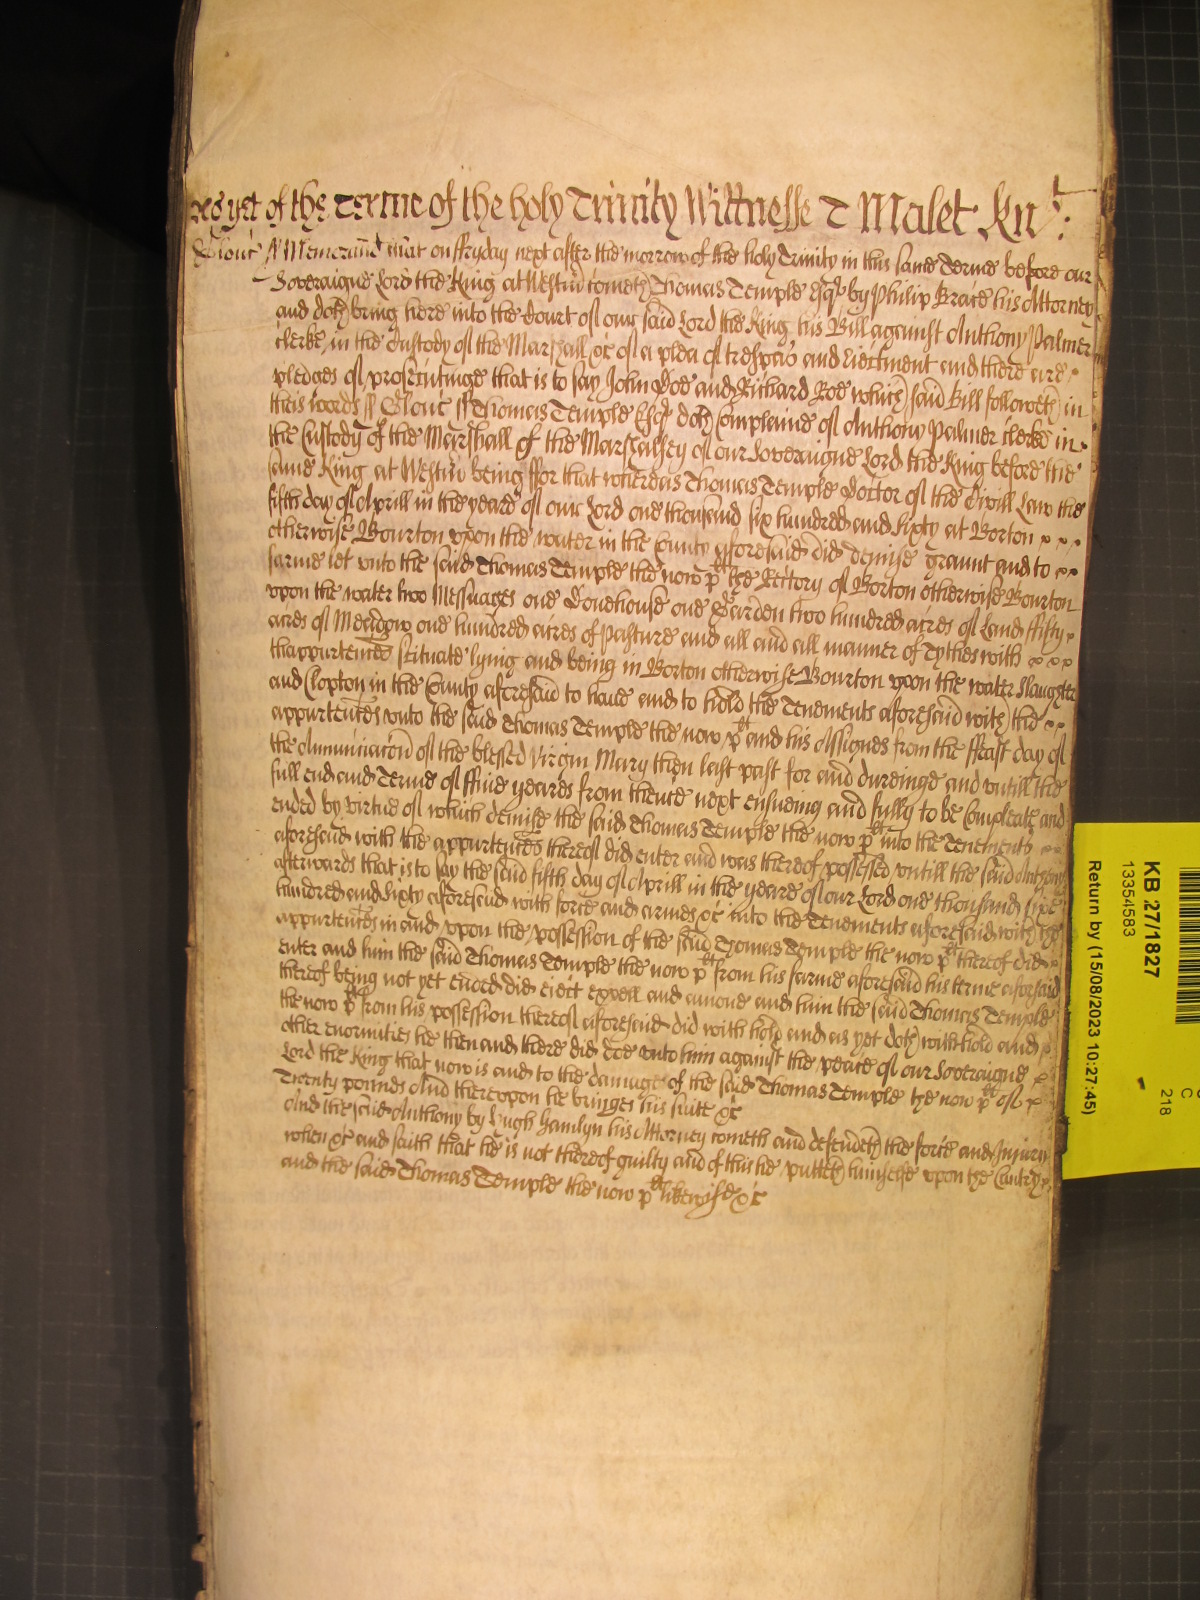 As yet of the Terme of the holy Trinity Wittnesse T Malet Knt.
Glouc' ss Memorand that on ffryday next after the morrow of the holy Trinity in this same Terme before our
Soveraigne Lord the King at Westm cometh Thomas Temple Esqr by Philip Brace his Attorney
and doth bring here into the Court of our said Lord the King his Bill against Anthony Palmer
Clerke in the Custody of the Marshall &c of a plea of trespas and eiectment and there are
pledges of prosecutinge that is to say John Doe and Richard Roe which said Bill followeth in
theis words ss Glouc ss Thomas Temple Esqr doth Complaine of Anthony Palmer Clerke in
the Custody of the Marshall of the Marshalsey of our Soveraigne Lord the King before the
same King at Westm being ffor that whereas Thomas Temple Doctor of the Civill Law the
fifth day of Aprill in the yeare of our Lord one thousand six hundred and sixty at Borton
otherwise Bourton upon the water in the County aforesaid did demise graunt and to
farme let unto the said Thomas Temple the now plt the Rectory of Borton otherwise Bourton
upon the water two Messuages one Dovehouse one Garden two hundred acres of Land ffifty
acres of Meadow one hundred acres of pasture and all and all manner of Tythes with
thappurtences scituate lying and being in Borton otherwise Bourton upon the water Slaughter
and Clopton in the County aforesaid to have and to hold the Tenements aforesaid with the
appurtences unto the said Thomas Temple the now plt and his Assignes from the ffeast day of
the Annunciacon of the blessed Virgin Mary then last past for and dureinge and untill the
full end and Terme of ffive yeares from thence next ensueing and fully to be Compleate and
ended by virtue of which demise the said Thomas Temple the now plt into the Tenements
aforesaid with the appurtences thereof did enter and was thereof possessed untill the said Anthony
afterwards that is to say the said fifth day of Aprill in the yeare of our Lord one thousand sixe
hundred and sixty aforesaid with force and armes &c into the Tenements aforesaid with the
appurtences in and upon the possession of the said Thomas Temple the now plt thereof did
enter and him the said Thomas Temple the now plt from his farme aforesaid his terme aforesaid
thereof being not yet ended did eiect expell and amove and him the said Thomas Temple
the now plt from his possession thereof aforesaid did with hold and as yet doth withhold and
other enormities he then and there did doe unto him against the peace of our Soveraigne
Lord the King that now is and to the damage of the said Thomas Temple the now plt of
Twenty pounds And thereupon he bringes his suite &c
And the said Anthony by Hugh Hamlyn his Attorney cometh and defendeth the force and Iniury
when &c and saith that he is not thereof guilty and of this he putteth himselfe upon the Cuntry
and the said Thomas Temple the now plt likewise &c
KB 27/1827
13354583
Return by (15/08/2023 10:27:45)
C
218